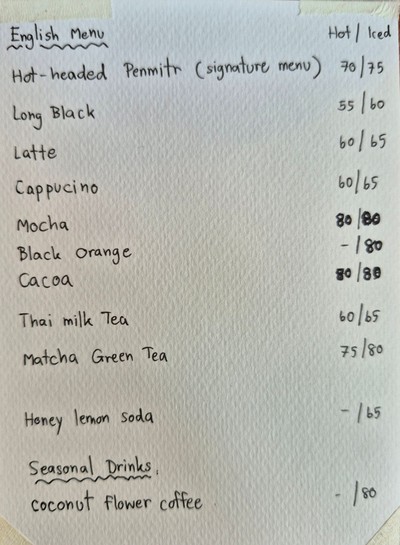 English Menu Hot / Iced
Hot-headed Penmitr (signature menu) 70/75
Long Black 55/60
Latte 60/65
Cappucino 60/65
Mocha 80/80
Black Orange -/80
Cacoa 80/80
Thai milk Tea 60/65
Matcha Green Tea 75/80
Honey lemon soda -/65
Seasonal Drinks,
coconut flower coffee -/80